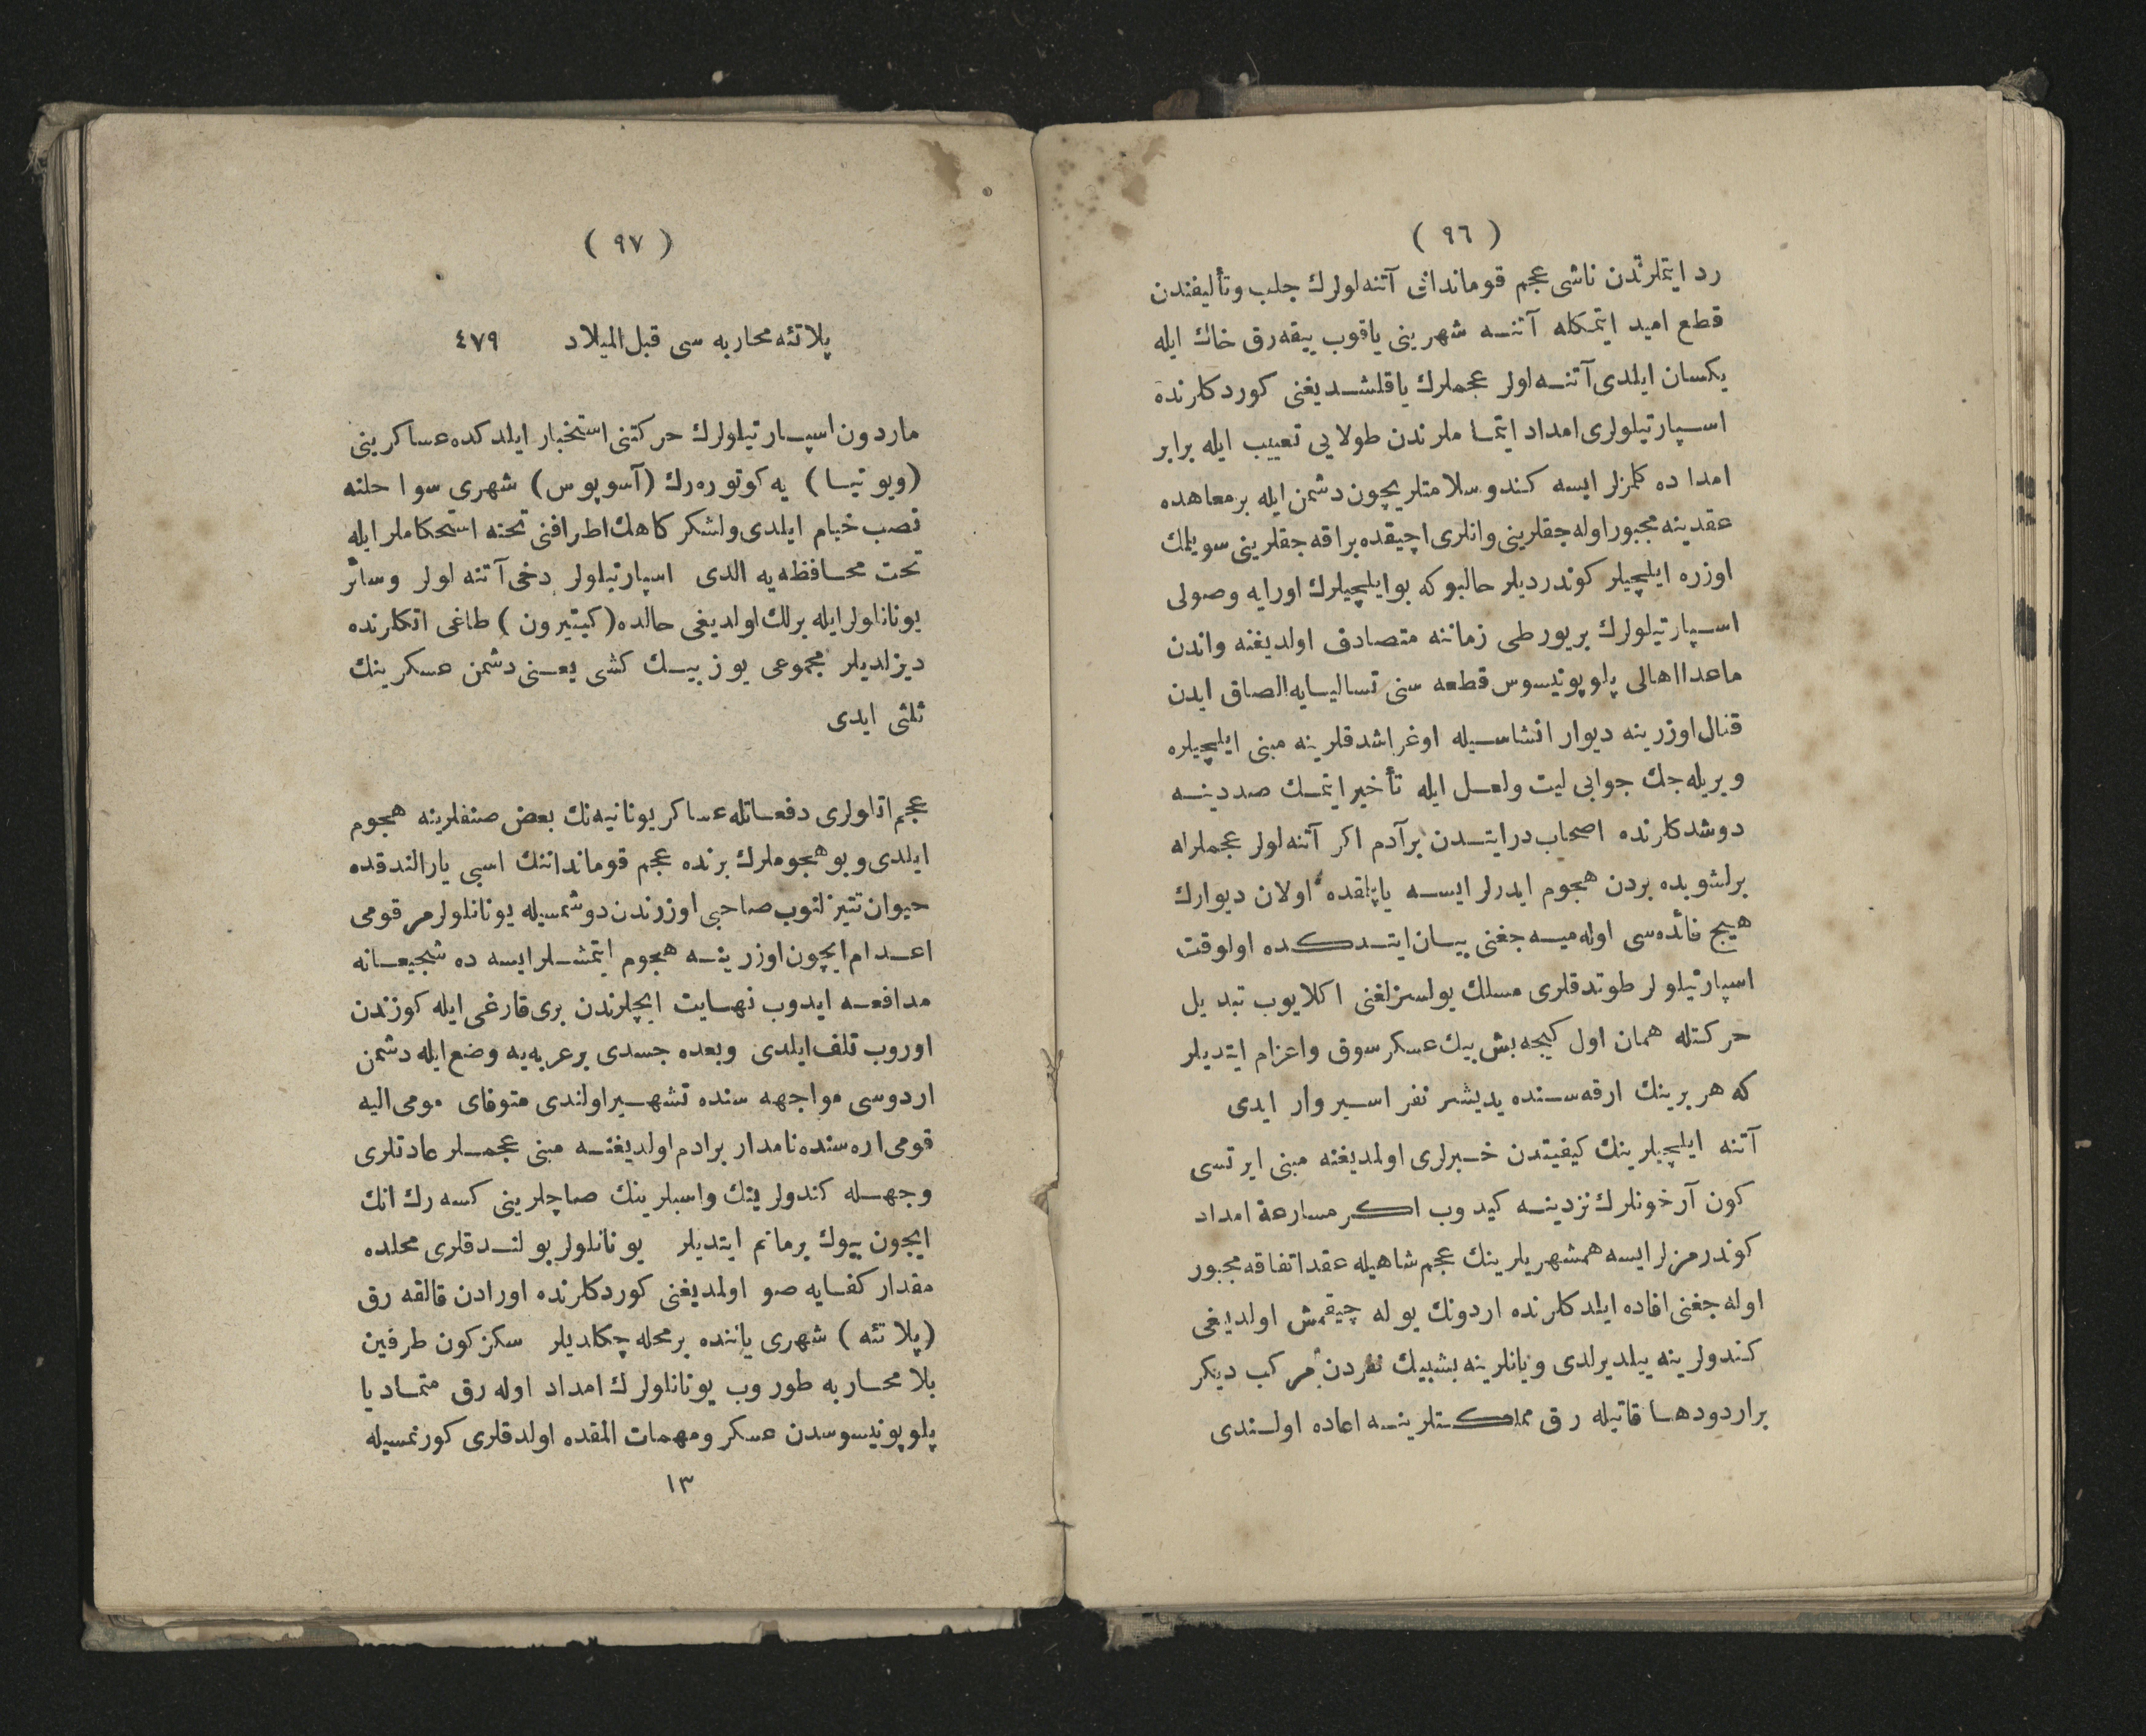 ( ٩٦ )
رد ایتملرندن ناشی عجم قوماندانی آتنه‌لولرك جلب وتألیفندن
قطع امید ایتمكله آتنه شهرینی یاقوب ییقه‌رق خاك ایله
یكسان ایلدی آتنه‌لولر عجملرك یاقلشدیغنی كوردكلرنده
اسپارتیلولری امداد ایتماملرندن طولایی تعییب ایله برابر
امداده كلمزلر ایسه كندو سلامتلریچون دشمن ایله بر معاهده
عقدینه مجبور اوله‌جقلرینی وانلری اچیقده براقه‌جقلرینی سویلمك
اوزره ایلچیلر كوندردیلر حالبوكه بو ایلچیلرك اورایه وصولی
اسپارتیلولرك بر یورطی زماننه متصادف اولدیغنه واندن
ماعدا اهالی پلوپونیسوس قطعه سنی تسالیایه الصاق ایدن
قنال اوزرینه دیوار انشاسیله اوغراشدقلرینه مبنی ایلچیلره
ویریله‌جك جوابی لیت ولعل ایله تأخیر ایتمك صددینه
دوشدكلرنده اصحاب درایتدن برآدم اكر آتنه‌لولر عجملرله
برلشوبده بردن هجوم ایدرلر ایسه یاپلقده اولان دیوارك
هیچ فائده‌سی اوله‌میه‌جغنی بیان ایتدكده اولوقت
اسپارتیلولر طوتدقلری مسلك یولسزلغنی اكلایوب تبدیل
حركتله همان اول كیجه بش بیك عسكر سوق واعزام ایتدیلر
كه هر برینك ارقه‌سنده یدیشر نفر اسیر وار ایدی
آتنه ایلچیلرینك كیفیتدن خبرلری اولمدیغنه مبنی ایرتسی
كون آرخونلرك نزدینه كیدوب اكر مسارعة امداد
كوندرمزلر ایسه همشهریلرینك عجم شاهیله عقد اتفاقه مجبور
اوله‌جغنی افاده ایلدكلرنده اردونك یوله چیقمش اولدیغی
كندولرینه بیلدیرلدی ویانلرینه بشبیك نفردن مركب دیكر
بر اردودها قاتیله‌رق مملكتلرینه اعاده اولندی
( ٩٧ )
پلاتئه محاربه سی قبل المیلاد ٤٧٩
ماردون اسپارتیلولرك حركتنی استخبار ایلدكده عساكرینی
(ویوتیا) یه كوتوره‌رك (آسوپوس) شهری سواحلنه
نصب خیام ایلدی ولشكركاهك اطرافنی تخته استحكاملر ایله
تحت محافظه‌یه الدی اسپارتیلولر دخی آتنه لولر وسائر
یونانلولر ایله برلك اولدیغی حالده (كیتیرون) طاغی اتكلرنده
دیزلدیلر مجموعی یوز بیك كشی یعنی دشمن عسكرینك
ثلثی ایدی
عجم اتلولری دفعاتله عساكر یونانیه‌نك بعض صنفلرینه هجوم
ایلدی وبو هجوملرك برنده عجم قومانداننك اسبی یارالندقده
حیوان تتیزلنوب صاحبی اوزرندن دوشمسیله یونانلولر مرقومی
اعدام ایچون اوزرینه هجوم ایتمشلر ایسه ده شجیعانه
مدافعه ایدوب نهایت ایچلرندن بری قارغی ایله كوزندن
اوروب تلف ایلدی وبعده جسدی بر عربه‌یه وضع ایله دشمن
اردوسی مواجهه سنده تشهیر اولندی متوفای مومی الیه
قومی اره‌سنده نامدار برادم اولدیغنه مبنی عجملر عادتلری
وجهله كندولرینك واسبلرینك صاچلرینی كسه رك انك
ایچون بیوك برماتم ایتدیلر یونانلولر بولندقلری محلده
مقدار كفایه صو اولمدیغنی كوردكلرنده اورادن قالقه رق
(پلاتئه) شهری یاننده بر محله چكلدیلر سكز كون طرفین
بلا محاربه طوروب یونانلولرك امداد اوله رق متمادیا
پلوپونیسوسدن عسكر ومهمات المقده اولدقلری كورنمسیله
١٣